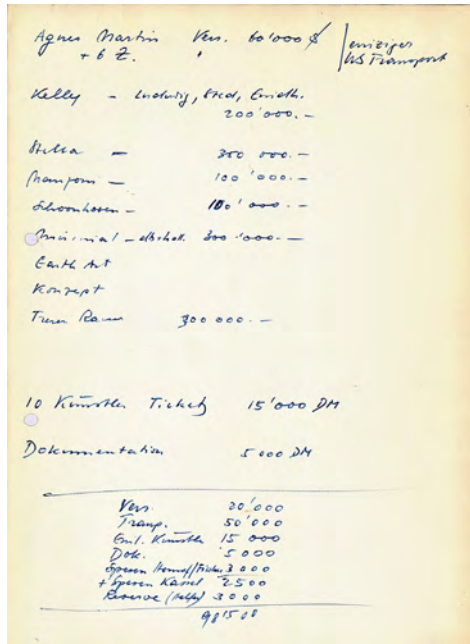 Agnes Martin Vers. 60'000 $
+ 6 Z. "
einziger
US Transport
Kelly – Ludwig, Sted,
200'000.–
Stella – 300 000.–
Manzoni – 100'000.–
Schoonhoven – 100'000.–
Minimal – 300'000.–
Earth Art
Konzept
300 000.–
10 Künstler Tickets 15'000 DM
Dokumentation 5 000 DM
Vers. 20'000
Transp. 50'000
Einl. Künstler 15 000
Dok. 5 000
Spesen 3 000
+ Spesen Kassel 2500
Reserve 3000
98'500